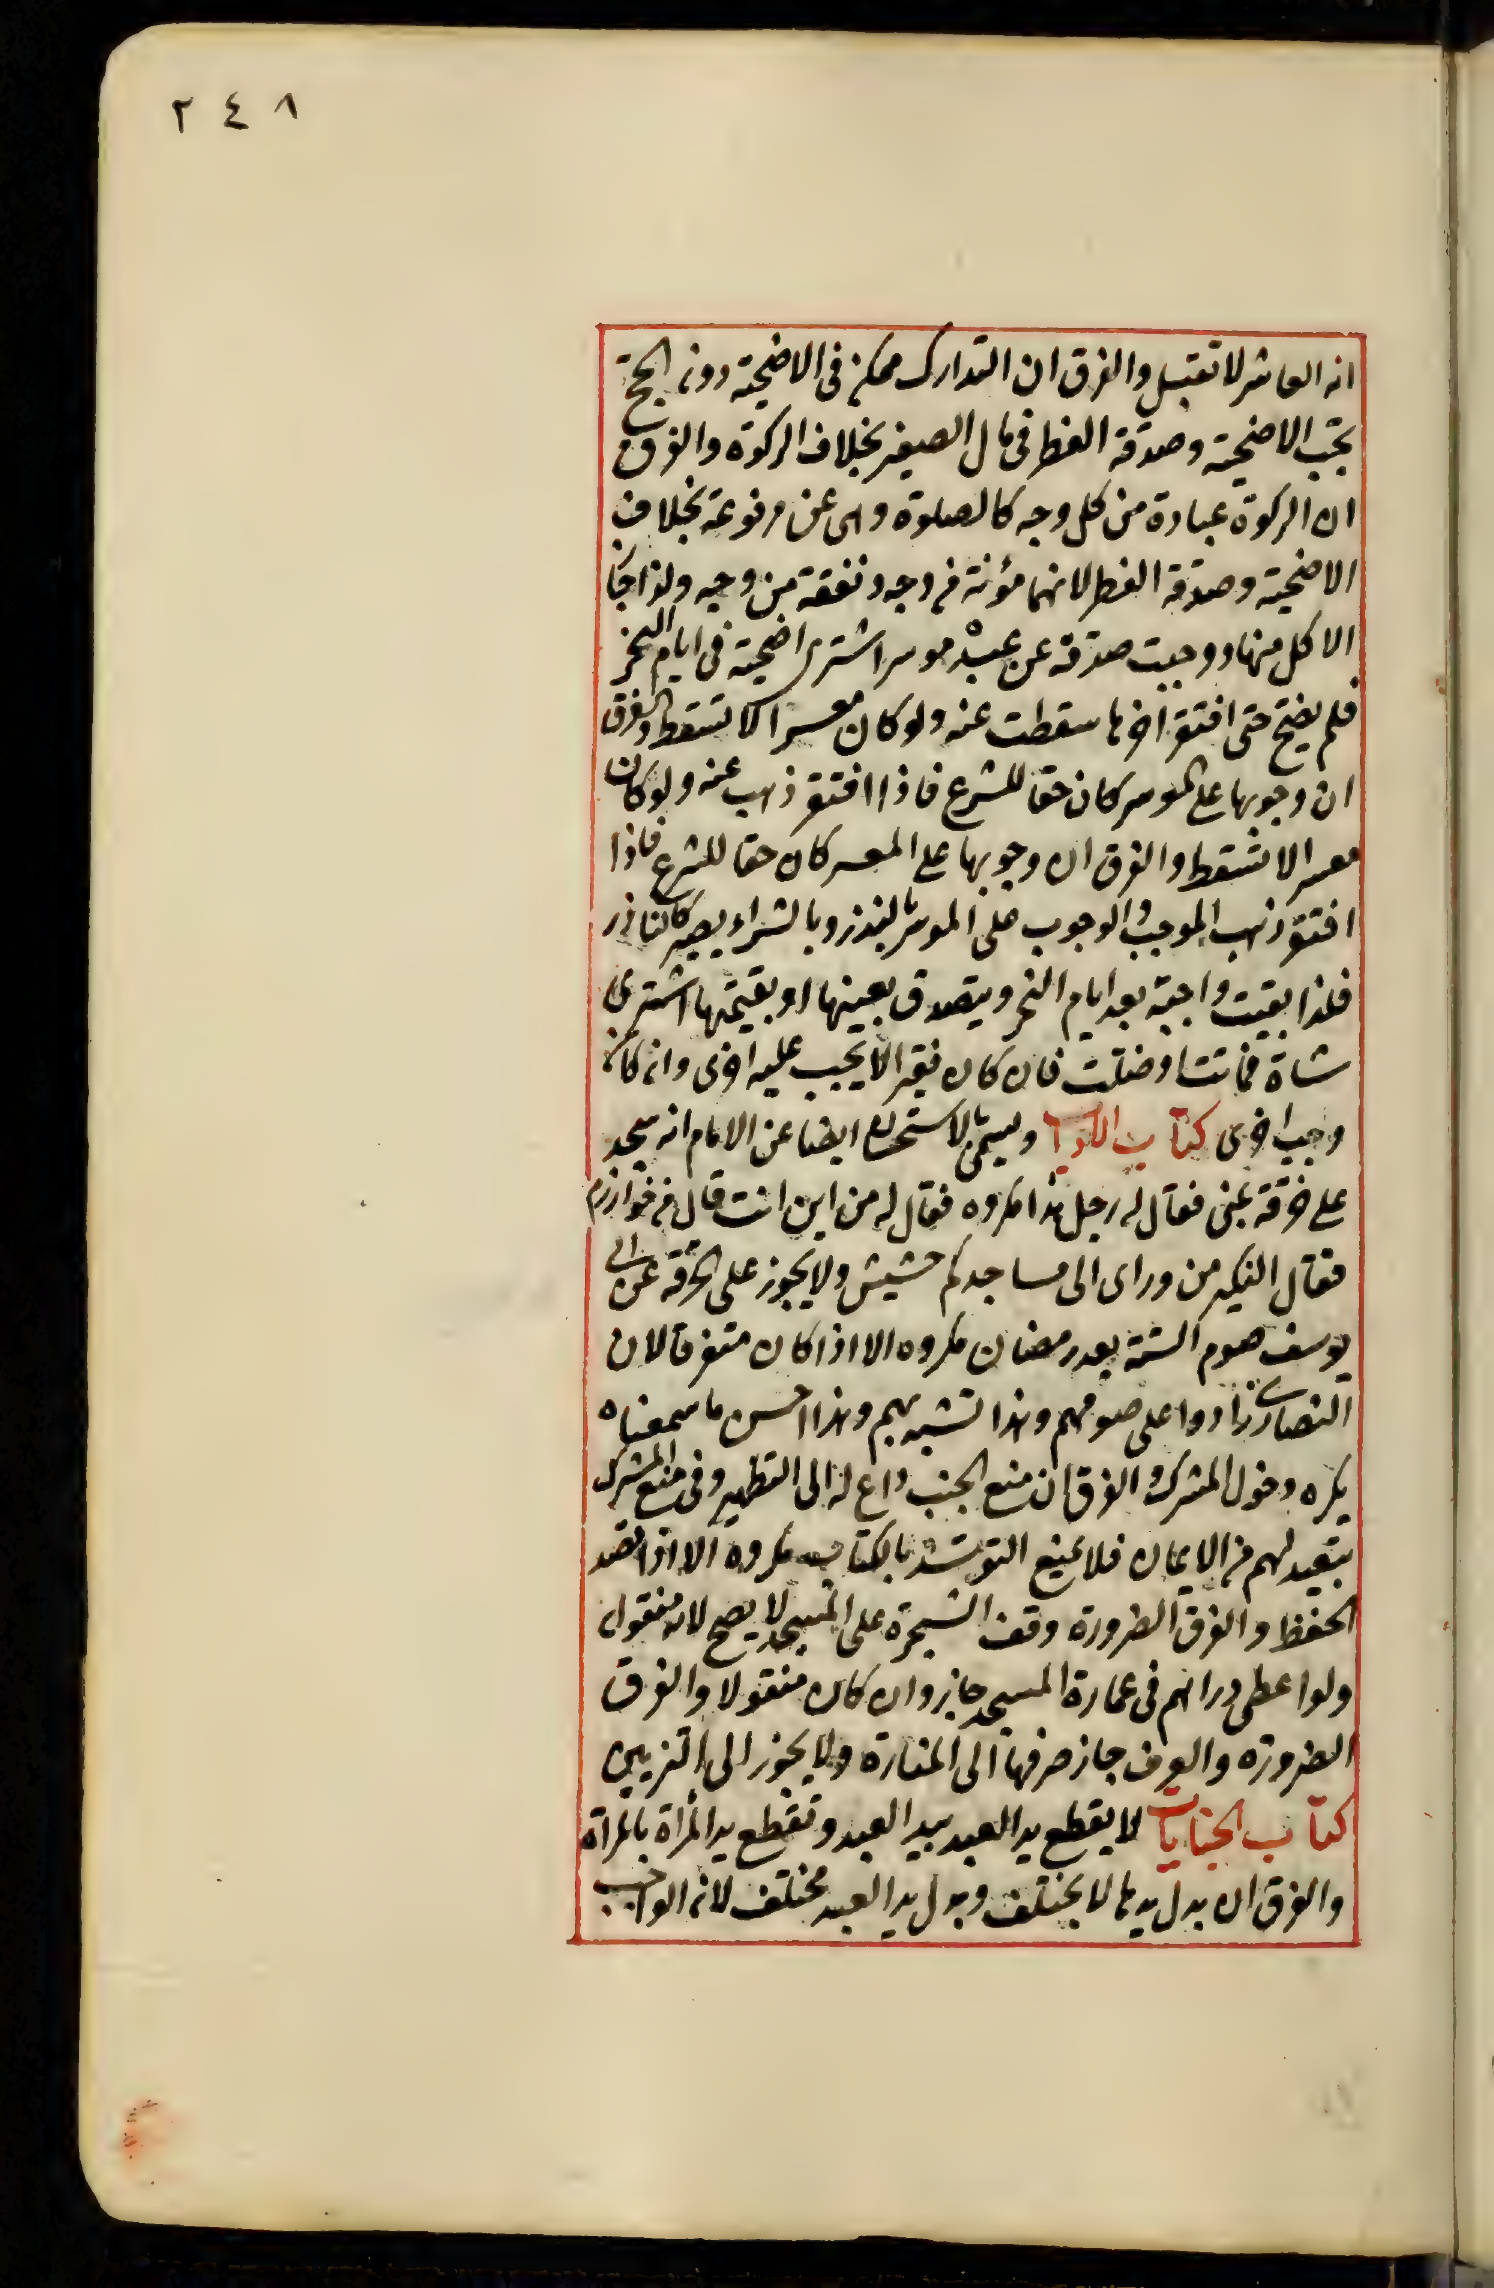 ٢٤٨
انه العاشر لا تقبل والفرق ان التدارك ممكن فى الاضحية دون الحج
تجب الاضحية وصدقة الفطر فى مال الصغير بخلاف الزكوة والفرق
ان الزكوة عبادة من كل وجه كالصلوة وهى عنه مرفوعة بخلاف
الاضحية وصدقة الفطر لانهما مؤنة من وجه ونفقة من وجه ولذا جاز
الاكل منها ووجبت صدقة عن عبده موسر اشترى اضحية فى ايام النحر
فلم يضح حتى افتقر اخرها سقطت عنه ولو كان معسرا لا تسقط والفرق
ان وجوبها على الموسر كان حقا للشرع فاذا افتقر ذهب عنه ولو كان
معسرا لا تسقط والفرق ان وجوبها على المعسر كان حقا للشرع فاذا
افتقر ذهب الموجب والوجوب على الموسر بالنذر وبالشراء يصير كالناذر
فلذا بقيت واجبة بعد ايام النحر ويتصدق بعينها او بقيمتها اشترى
شاة فماتت او ضلت فان كان فقيرا لا يجب عليه اخرى وان كان
وجب اخرى كتاب ويسمى بالاستحسان ايضا عن الامام انه سجد
على خرقة بمنى فقال له رجل هذا مكروه فقال له من اين انت قال من خوارزم
فقال التكبير من وراى الى مساجدكم حشيش ولا يجوز على الخرقة عن ابى
يوسف صوم الستة بعد رمضان مكروه الا اذا كان متفرقا لان
النصارى زادوا على صومهم وهذا تشبه بهم وهذا احسن ما سمعناه
يكره دخول المشرك والفرق ان منع الجنب داع له الى التطهير وفى منع المشرك
تبعيد لهم من الايمان فلا يمنع التوسد بالكتاب مكروه الا اذا قصد
الحفظ والفرق الضرورة وقف الشجرة على المسجد لا يصح لانه منقول
ولو اعطى دراهم فى عمارة المسجد جاز وان كان منقولا والفرق
الضرورة والعرف جاز صرفها الى المنارة ولا يجوز الى التزيين
كتاب الجنايات لا يقطع يد العبد بيد العبد وتقطع يد المرأة بالمرأة
والفرق ان بدل يدها لا يختلف وبدل يد العبد مختلف لان الواجب